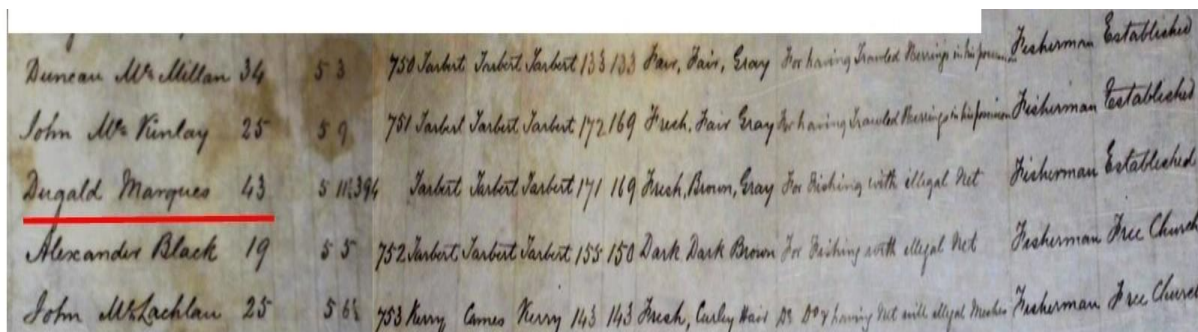 Duncan McMillan 34 5 3 750 Tarbert Tarbert Tarbert 133 133 Fair, Fair, Gray For having Trawled Herrings in his possession Fisherman Established
John McKinlay 25 5 9 751 Tarbert Tarbert Tarbert 172 169 Fresh, Fair Gray For having Trawled Herrings in his possession Fisherman Established
Dugald Marques 43 5 11½ 394 Tarbert Tarbert Tarbert 171 169 Fresh, Brown, Gray For Fishing with illegal Net Fisherman Established
Alexander Black 19 5 5 752 Tarbert Tarbert Tarbert 155 150 Dark Dark Brown For Fishing with illegal Net Fisherman Free Church
John McLachlan 25 5 6½ 753 Kerry Cames Kerry 143 143 Fresh, Curley Hair Do Do & having Net with illegal Meshes Fisherman Free Church